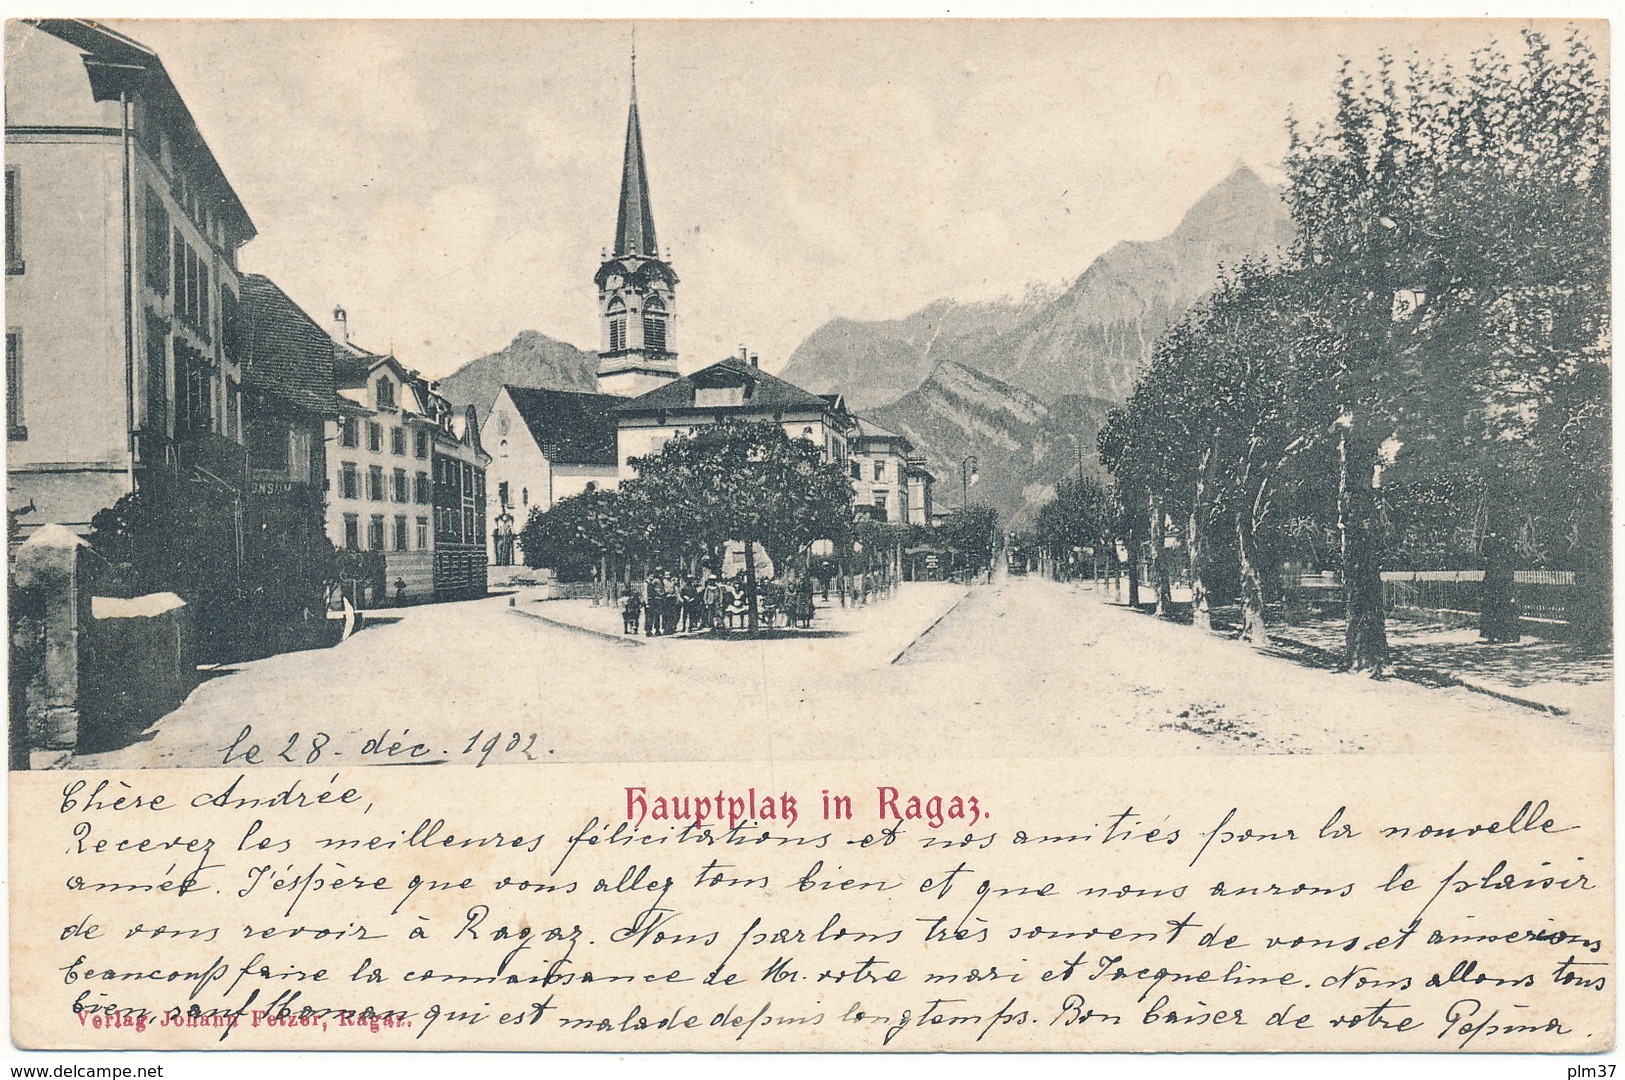 ONSUM
le 28. déc. 1902.
Chère Andrée,
Hauptplatz in Ragaz.
Recevez les meilleures félicitations et nos amitiés pour la nouvelle
année. J'éspère que vous allez tous bien et que nous aurons le plaisir
de vous revoir à Ragaz. Nous parlons très souvent de vous et aimerions
beaucoup faire la connaissance de Mr. votre mari et Jacqueline. Nous allons tous
bien, sauf Maman qui est malade depuis longtemps. Bon baiser de votre Pepina.
Verlag Johann Fetzer, Ragaz.
delcampe.net
plm37